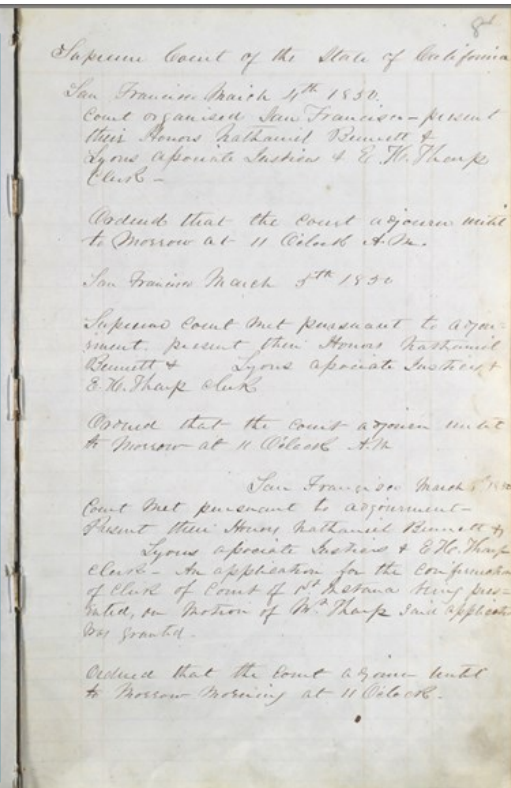 Supreme Court of the State of California
San Francisco March 4th 1850.
Court organised San Francisco – present
their Honors Nathaniel Bennett &
Lyons associate Justices & E. H. Tharp
Clerk –
Ordered that the court adjourn until
to Morrow at 11 Oclock A.M.
San Francisco March 5th 1850
Supreme Court Met pursuant to adjou-
rnment. present their Honors Nathaniel
Bennett & Lyons associate Justices &
E. H. Tharp clerk
Ordered that the court adjourn until
to Morrow at 11 Oclock A.M
San Francisco March 1850
Court Met pursuant to adjournment –
Present their Honors Nathaniel Bennett &
Lyons associate Justices & E H. Tharp
Clerk – An application for the confirmation
of Clerk of Court of 1st Instance being pres-
ented, on Motion of Mr Tharp said applicati
was granted.
Ordered that the Court adjourn until
to Morrow Morning at 11 Oclock.